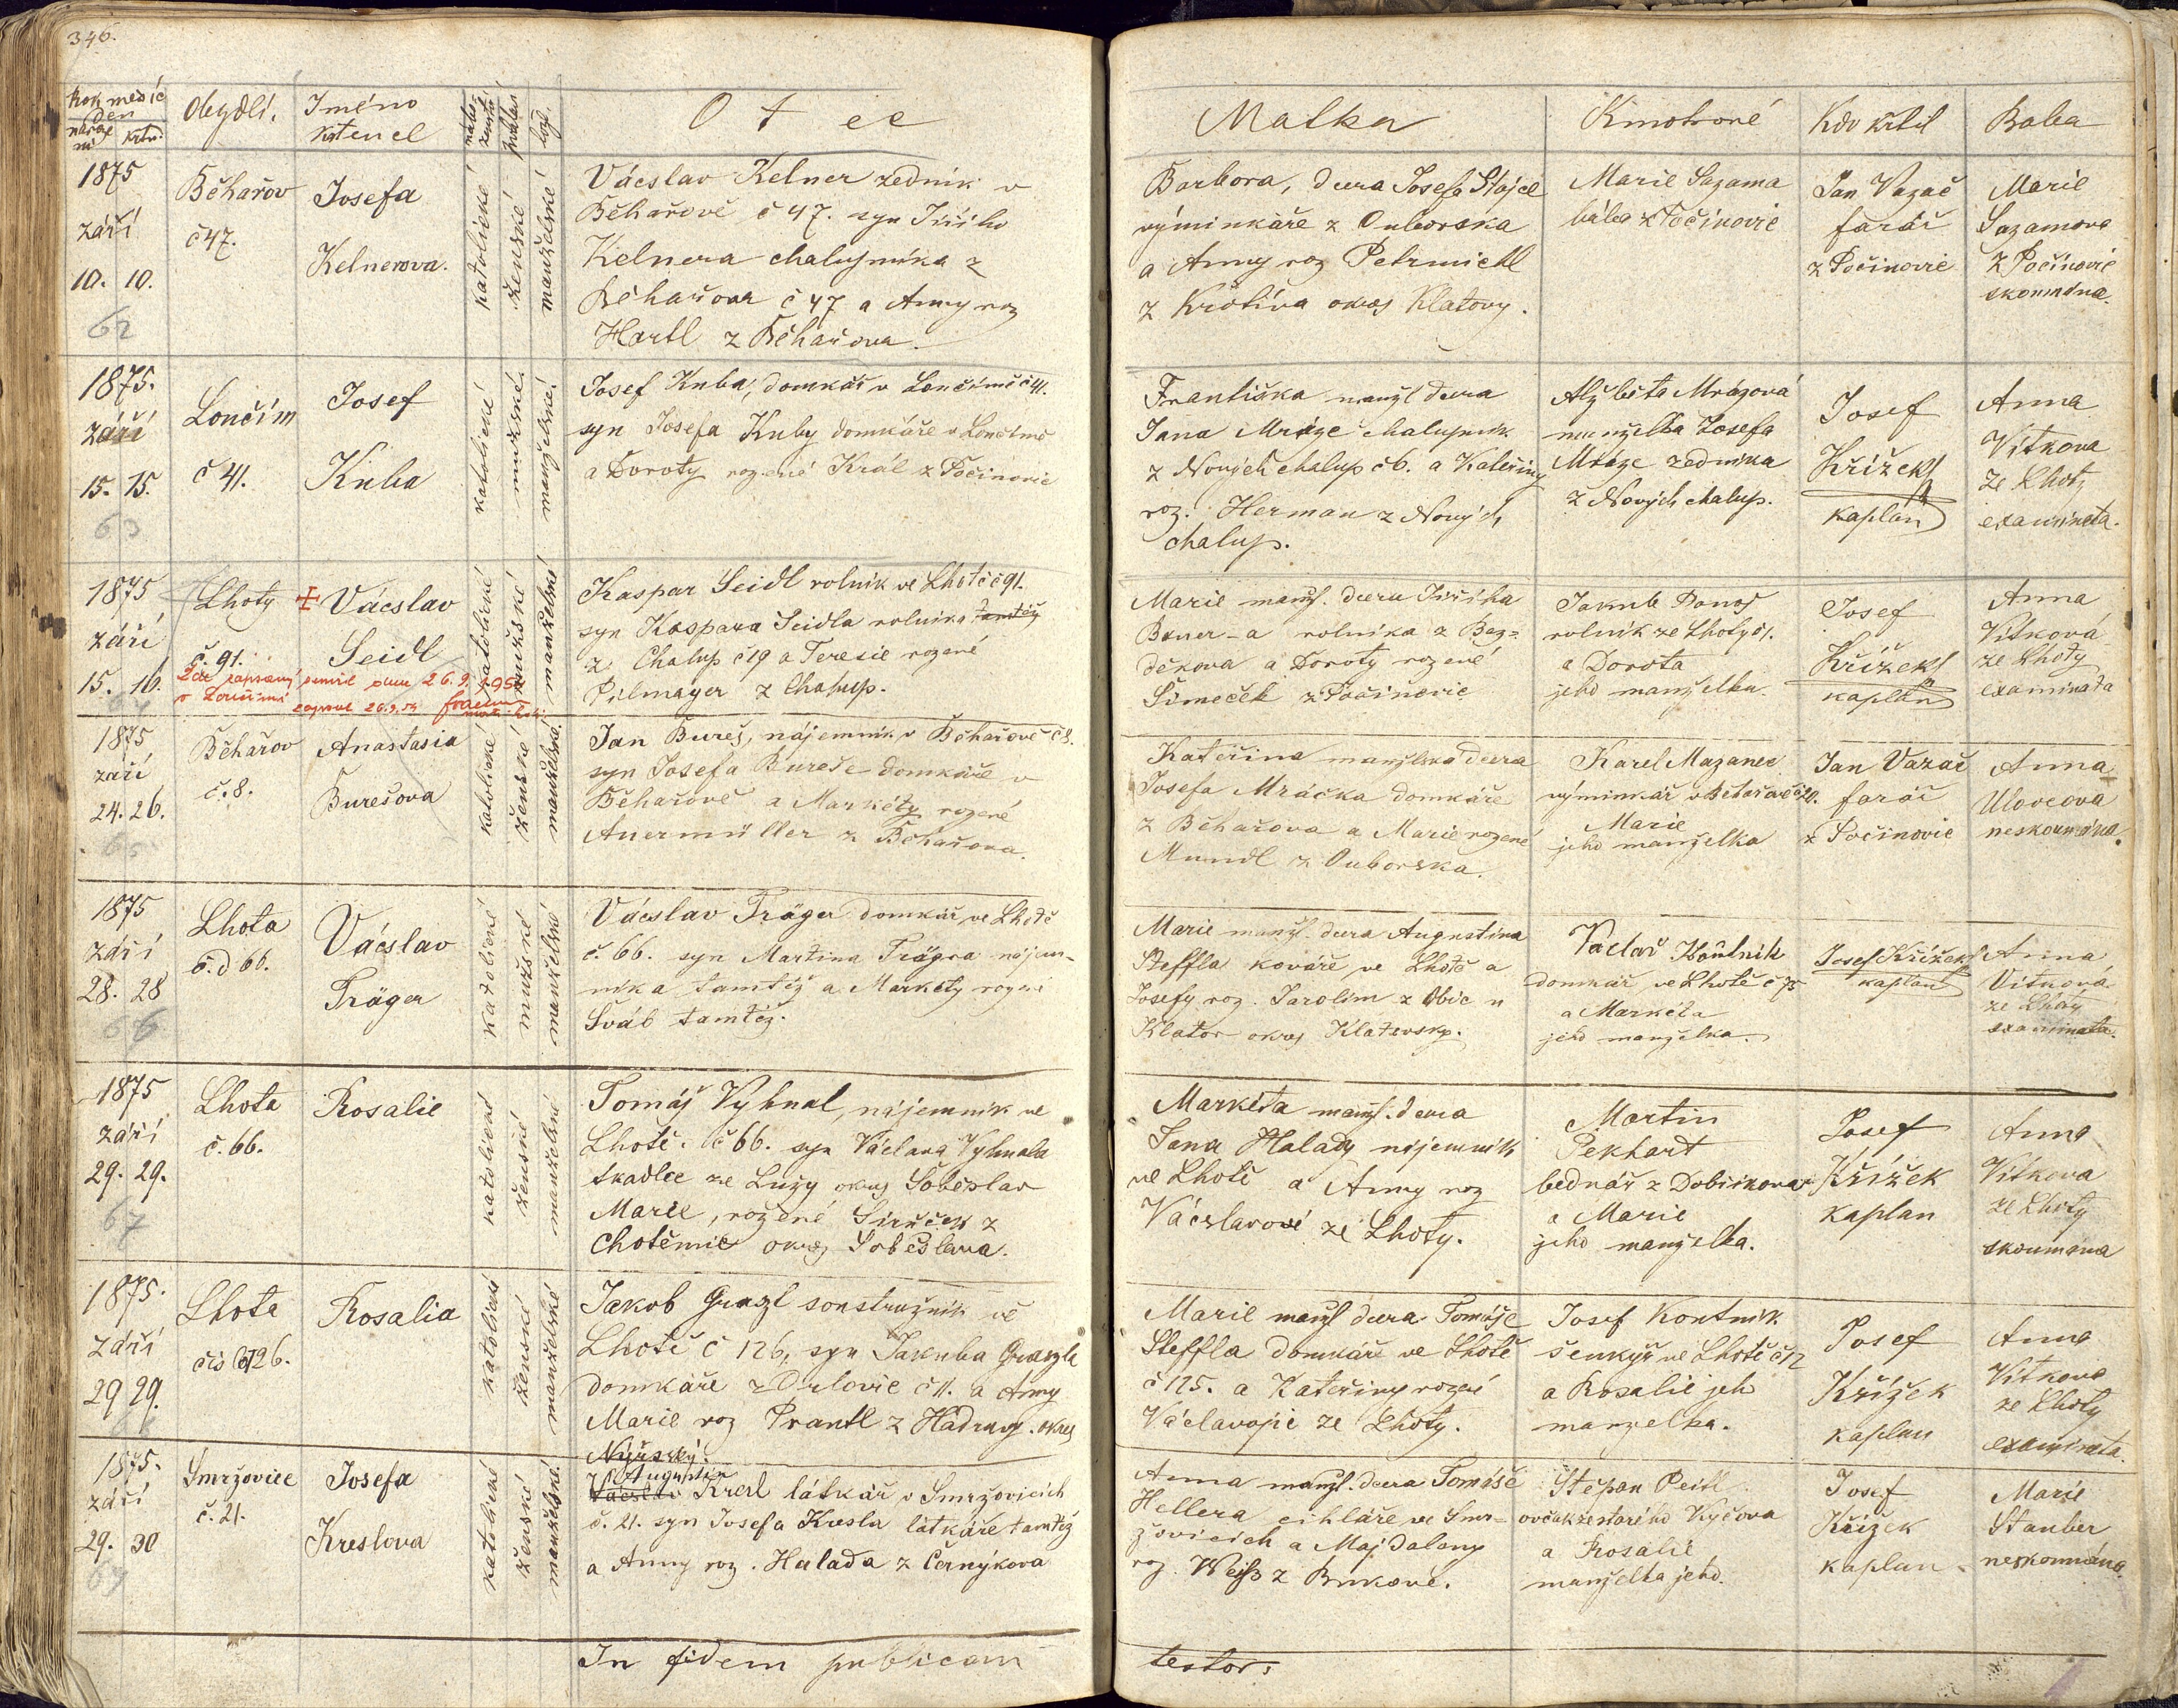 346.
Rok měsíc
den
naro
ní
křtu
Obydlí.
Jméno
křtencl
nábo-
ženství
pohlaví
lože.
Otec
Matka
Kmotrové
Kdo křtil
Baba
1875
září
10. 10.
62
Běhařov
č 47.
Josefa
Kelnerova.
katolické
ženské
manželské
Václslav Kelner zedník v
Běhařově č 47. syn Jiřího
Kelnera chalupníka z
Běhařova č 47 a Anny roz
Hartl z Běhařova.
Barbora, dcera Josefa Stájce
výminkáře z Ouborska
a Anny roz Petrmichl
z Krotíva okres Klatovy.
Marie Sazama
bába z Počínovic
Jan Vazač
farář
z Počinovic
Marie
Sazamova
z Počínovic
skoumána.
1875.
září
15. 15.
63
Loučím
č 41.
Josef
Kuba
katolické
mužské
manželské
Josef Kuba, domkář v Loučímě č 41.
syn Josefa Kuby domkáře v Loučímě
a Doroty rozené Král z Počínovic
Františka manžl dcera
Jana Mráze chalupník
z Nových chalup č 6. a Kateřiny
roz. Herman z Nových
chalup.
Alžběta Mrázová
manželka Josefa
Mráze zedníka
z Nových chalup.
Josef
Křížek
kaplan
Anna
Vítkova
ze Lhoty
examinata.
1875
září
15. 16.
64
Lhoty
č. 91.
Václslav
Seidl
katolické
mužské
manželské
Zde zapsaný zemřel dne 26.9. 195
v Loučimi
zapsal 26.9.54
Kaspar Seidl rolník ve Lhotě č 91.
syn Kaspara Seidla rolníka tamtéž
z Chalup č 19 a Teresie rozené
Pilmayer z Chalup.
Marie manžl. dcera Jiříka
Bauer-a rolníka z Bez-
děkova a Doroty rozené
Šimeček z Počínovic
Jakub
rolník ze Lhoty č.
a Dorota
jeho manželka.
Josef
Křížek
kaplan
Anna
Vítková
ze Lhoty
examinata
1875
září
24. 26.
65
Běhařov
č. 8.
Anastasia
Burešova
katolické
ženské
manželské.
Jan Bureš, nájemník v Běhařově č 8.
syn Josefa Bureše domkáře v
Běhařově a Markéty rozené
Auermüller z Běhařova.
Kateřina manželská dcera
Josefa Mráčka domkáře
z Běhařova a Marie rozené
Mundl z Ouborska.
Karel Mazanec
výminkář v Běhařově č 20.
Marie
jeho manželka
Jan Vazač
farář
z Počinovic
Anna
Ulovcova
neskoumána.
1875
září
28. 28
66
Lhota
č.d 66.
Václslav
Träger
katolické
mužské
manželské
Václslav Träger domkář ve Lhotě
č. 66. syn Martina Trägra nájem-
níka tamtéž a Markéty rozené
Šváb tamtéž.
Marie manžl. dcera Augustina
Steffla kováře ve Lhotě a
Josefy roz. Jarolím z Obic u
Klatov okres Klatovský.
Vaclav Koutník
domkář ve Lhotě č 75
a Markéta
jeho manželka.
Josef Křížek
kaplan
Anna
Vítková
ze Lhoty
examinata.
1875
září
29. 29.
67
Lhota
č. 66.
Rosalie
katolické
ženské
manželské
Tomáš Vyhnal, nájemník ve
Lhotě. č 66. syn Václava Vyhnala
tkadlce ze Luzy okres Soběslav
Marie, rozené Sirůček z
Chotěmic okres Soběslava.
Markéta manžl. dcera
Jana Halady nájemník
ve Lhotě a Anny roz
Václslavové ze Lhoty.
Martin
Pekhart
bednář z Dobříkova
a Marie
jeho manželka.
Josef
Křížek
kaplan
Anna
Vítkova
ze Lhoty
skoumána
1875.
září
29 29.
Lhota
čís 126.
Rosalia
katolické
ženské
manželské
Jakob Graszl soustružník ve
Lhotě č 126, syn Jakuba Graszla
domkáře z Orlovic č 11. a Anny
Marie roz Prantl z Hadravy. okres
Nýrský.
Marie manžl dcera Tomáše
Steffla domkáře ve Lhotě
č 125. a Kateřiny rozené
Václavovic ze Lhoty.
Josef Koutník
šenkýř ve Lhotě č 12
a Rosalie jeh
manželka.
Josef
Křížek
kaplan
Anna
Vítkova
ze Lhoty
examinata.
1875.
září
29. 30
69
Smržovice
č. 21.
Josefa
Kreslova
katolické
ženské
manželské.
Augustin
Václslav Kresl látkář v Smržovicích
č. 21. syn Josefa Kresla látkáře tamtéž
a Anny roz. Halada z Černýkova
Anna manžl. dcera Tomáše
Hellera cihláře ve Smr-
žovicích a Majdaleny
roz. Weiß z Brükové.
Štěpan Peitl
ovčák ze starého Kyčova
a Rosalie
manželka jeho.
Josef
Křížek
kaplan
Marie
Stauber
neskoumána.
In fidem publicam
testor.